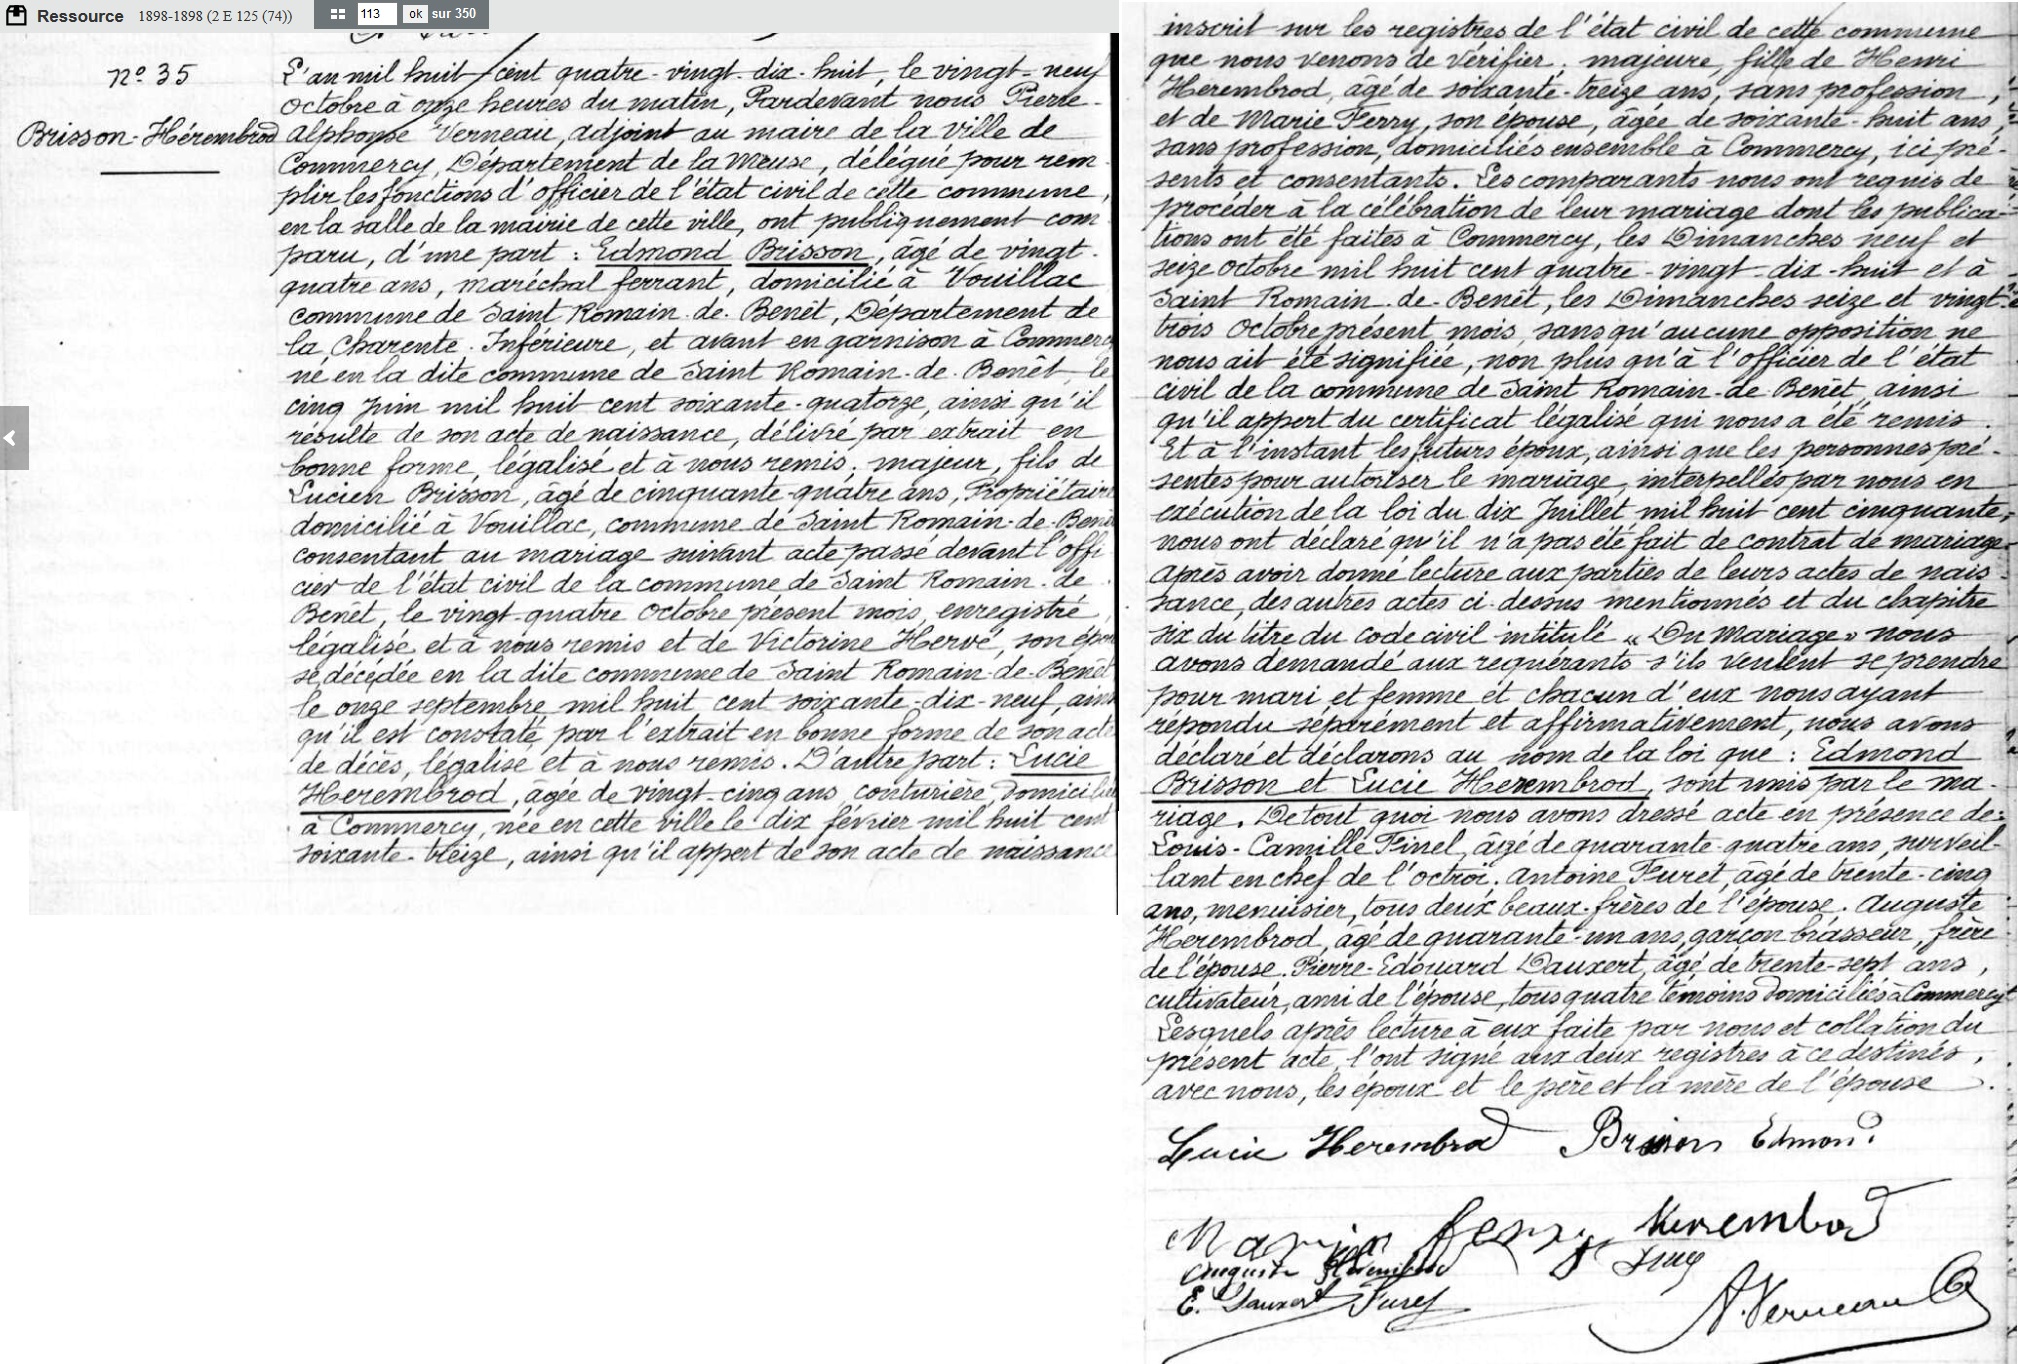 Ressource 1898-1898 (2 E 125 (74)) 113 ok sur 350
nº 35
Brisson-Hérembrod
L'an mil huit cent quatre-vingt-dix-huit, le vingt-neuf
Octobre à onze heures du matin, Pardevant nous Pierre-
Alphonse Verneau, adjoint au maire de la ville de
Commercy, Département de la Meuse, délégué pour rem-
plir les fonctions d'officier de l'état civil de cette commune,
en la salle de la mairie de cette ville, ont publiquement com-
paru, d'une part : Edmond Brisson, âgé de vingt-
quatre ans, maréchal ferrant, domicilié à Vouillac
commune de Saint Romain-de-Benêt, Département de
la Charente-Inférieure, et avant en garnison à Commercy
né en la dite commune de Saint Romain-de-Benêt, le
cinq Juin mil huit cent soixante-quatorze, ainsi qu'il
résulte de son acte de naissance, délivré par extrait en
bonne forme, légalisé et à nous remis. majeur, fils de
Lucien Brisson, âgé de cinquante-quatre ans, Propriétaire
domicilié à Vouillac, commune de Saint Romain-de-Benêt
consentant au mariage suivant acte passé devant l'offi-
cier de l'état civil de la commune de Saint Romain-de-
Benêt, le vingt-quatre Octobre présent mois, enregistré,
légalisé et à nous remis et de Victorine Hervé, son épou-
se décédée en la dite commune de Saint Romain-de-Benêt
le onze septembre mil huit cent soixante-dix-neuf, ainsi
qu'il est constaté par l'extrait en bonne forme de son acte
de décès, légalisé et à nous remis. D'autre part : Lucie
Herembrod, âgée de vingt-cinq ans, couturière, domiciliée
à Commercy, née en cette ville le dix février mil huit cent
soixante-treize, ainsi qu'il appert de son acte de naissance
inscrit sur les registres de l'état civil de cette commune
que nous venons de vérifier. majeure, fille de Henri
Herembrod, âgé de soixante-treize ans, sans profession,
et de Marie Ferry, son épouse, âgée de soixante-huit ans,
sans profession, domiciliés ensemble à Commercy, ici pré-
sents et consentants. Les comparants nous ont requis de
procéder à la célébration de leur mariage dont les publica-
tions ont été faites à Commercy, les Dimanches neuf et
seize octobre mil huit cent quatre-vingt-dix-huit et à
Saint Romain-de-Benêt, les Dimanches seize et vingt-
trois Octobre présent mois, sans qu'aucune opposition ne
nous ait été signifiée, non plus qu'à l'officier de l'état
civil de la commune de Saint Romain-de-Benêt, ainsi
qu'il appert du certificat légalisé qui nous a été remis.
Et à l'instant les futurs époux, ainsi que les personnes pré-
sentes pour autoriser le mariage, interpellés par nous en
exécution de la loi du dix Juillet mil huit cent cinquante,
nous ont déclaré qu'il n'a pas été fait de contrat de mariage.
Après avoir donné lecture aux parties de leurs actes de nais-
sance, des autres actes ci-dessus mentionnés et du chapitre
six du titre du code civil intitulé « Du Mariage » nous
avons demandé aux requérants s'ils veulent se prendre
pour mari et femme et chacun d'eux nous ayant
répondu séparément et affirmativement, nous avons
déclaré et déclarons au nom de la loi que : Edmond
Brisson et Lucie Herembrod, sont unis par le ma-
riage. De tout quoi nous avons dressé acte en présence de :
Louis-Camille Finel, âgé de quarante-quatre ans, surveil-
lant en chef de l'octroi. Antoine Furet, âgé de trente-cinq
ans, menuisier, tous deux beaux-frères de l'épouse. Auguste
Herembrod, âgé de quarante-un ans, garçon brasseur, frère
de l'épouse. Pierre-Edouard Dauxert, âgé de trente-sept ans,
cultivateur, ami de l'épouse, tous quatre témoins domiciliés à Commercy
Lesquels après lecture à eux faite par nous et collation du
présent acte, l'ont signé aux deux registres à ce destinés,
avec nous, les époux et le père et la mère de l'épouse.
Lucie Herembrod Brisson Edmond
Maria ferry herembrod
Auguste Herembrod
E. Dauxert Furet A. Verneau